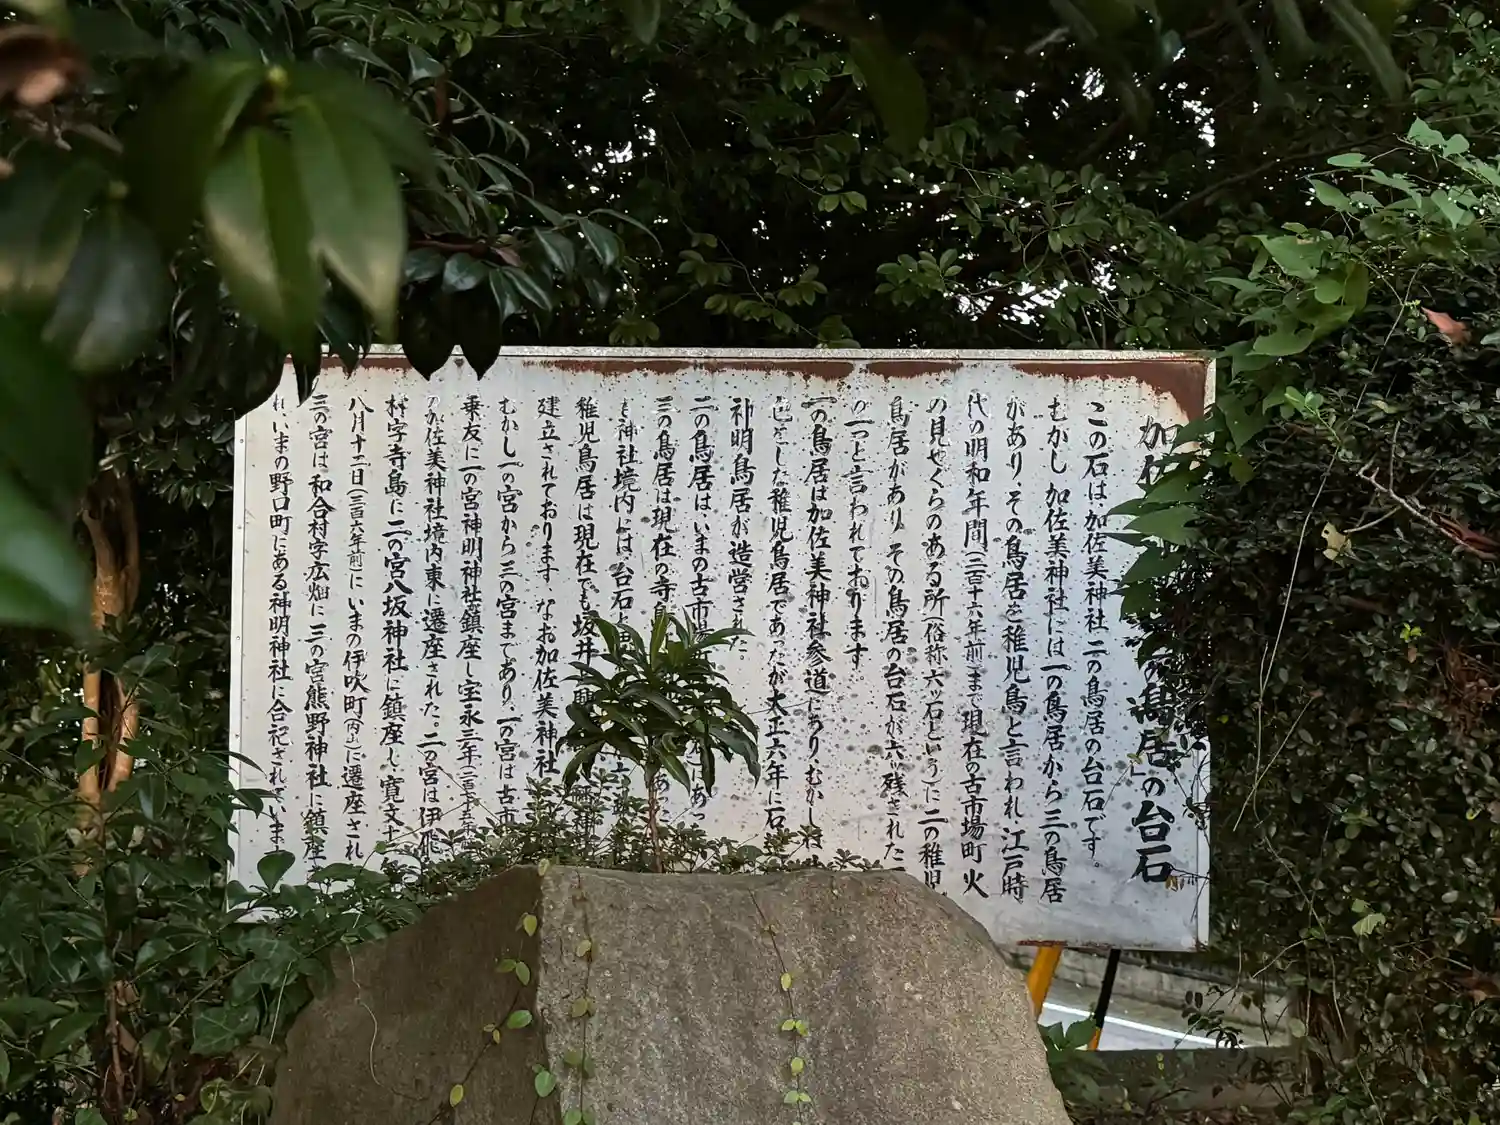 加佐 の鳥居」の台石
この石は加佐美神社 二の鳥居の台石です。
むかし 加佐美神社には一の鳥居から三の鳥居
があり、その鳥居を稚児鳥と言われ 江戸時
代の明和年間(二百十六年前)まで 現在の古市場町 火
の見やぐらのある所(俗称六ッ石という)に 二の稚児
鳥居があり その鳥居の台石が六ッ残された
の一つと言われております。
一の鳥居は加佐美神社参道にあり、むかしは
としな稚児鳥居であったが 大正六年に石
神明鳥居が造営された。
二の鳥居はいまの古市場 にあっ
三の鳥居は現在の寺島 あっ
神社境内には台石
稚児鳥居は現在でも坂井 神
建立されております。なお加佐美神社
むかし 一の宮から三の宮まであり、一の宮は古市
乗友に一の宮神明神社鎮座し宝永三年
の加佐美神社境内東に遷座された。二の宮は伊飛
村字寺島に二の宮八坂神社に鎮座し 寛文十
八月十二日(三百六年前)にいまの伊吹町(内)に遷座され
三の宮は和合村字広畑に三の宮熊野神社に鎮座
れ いまの野口町にある神明神社に合祀されていま